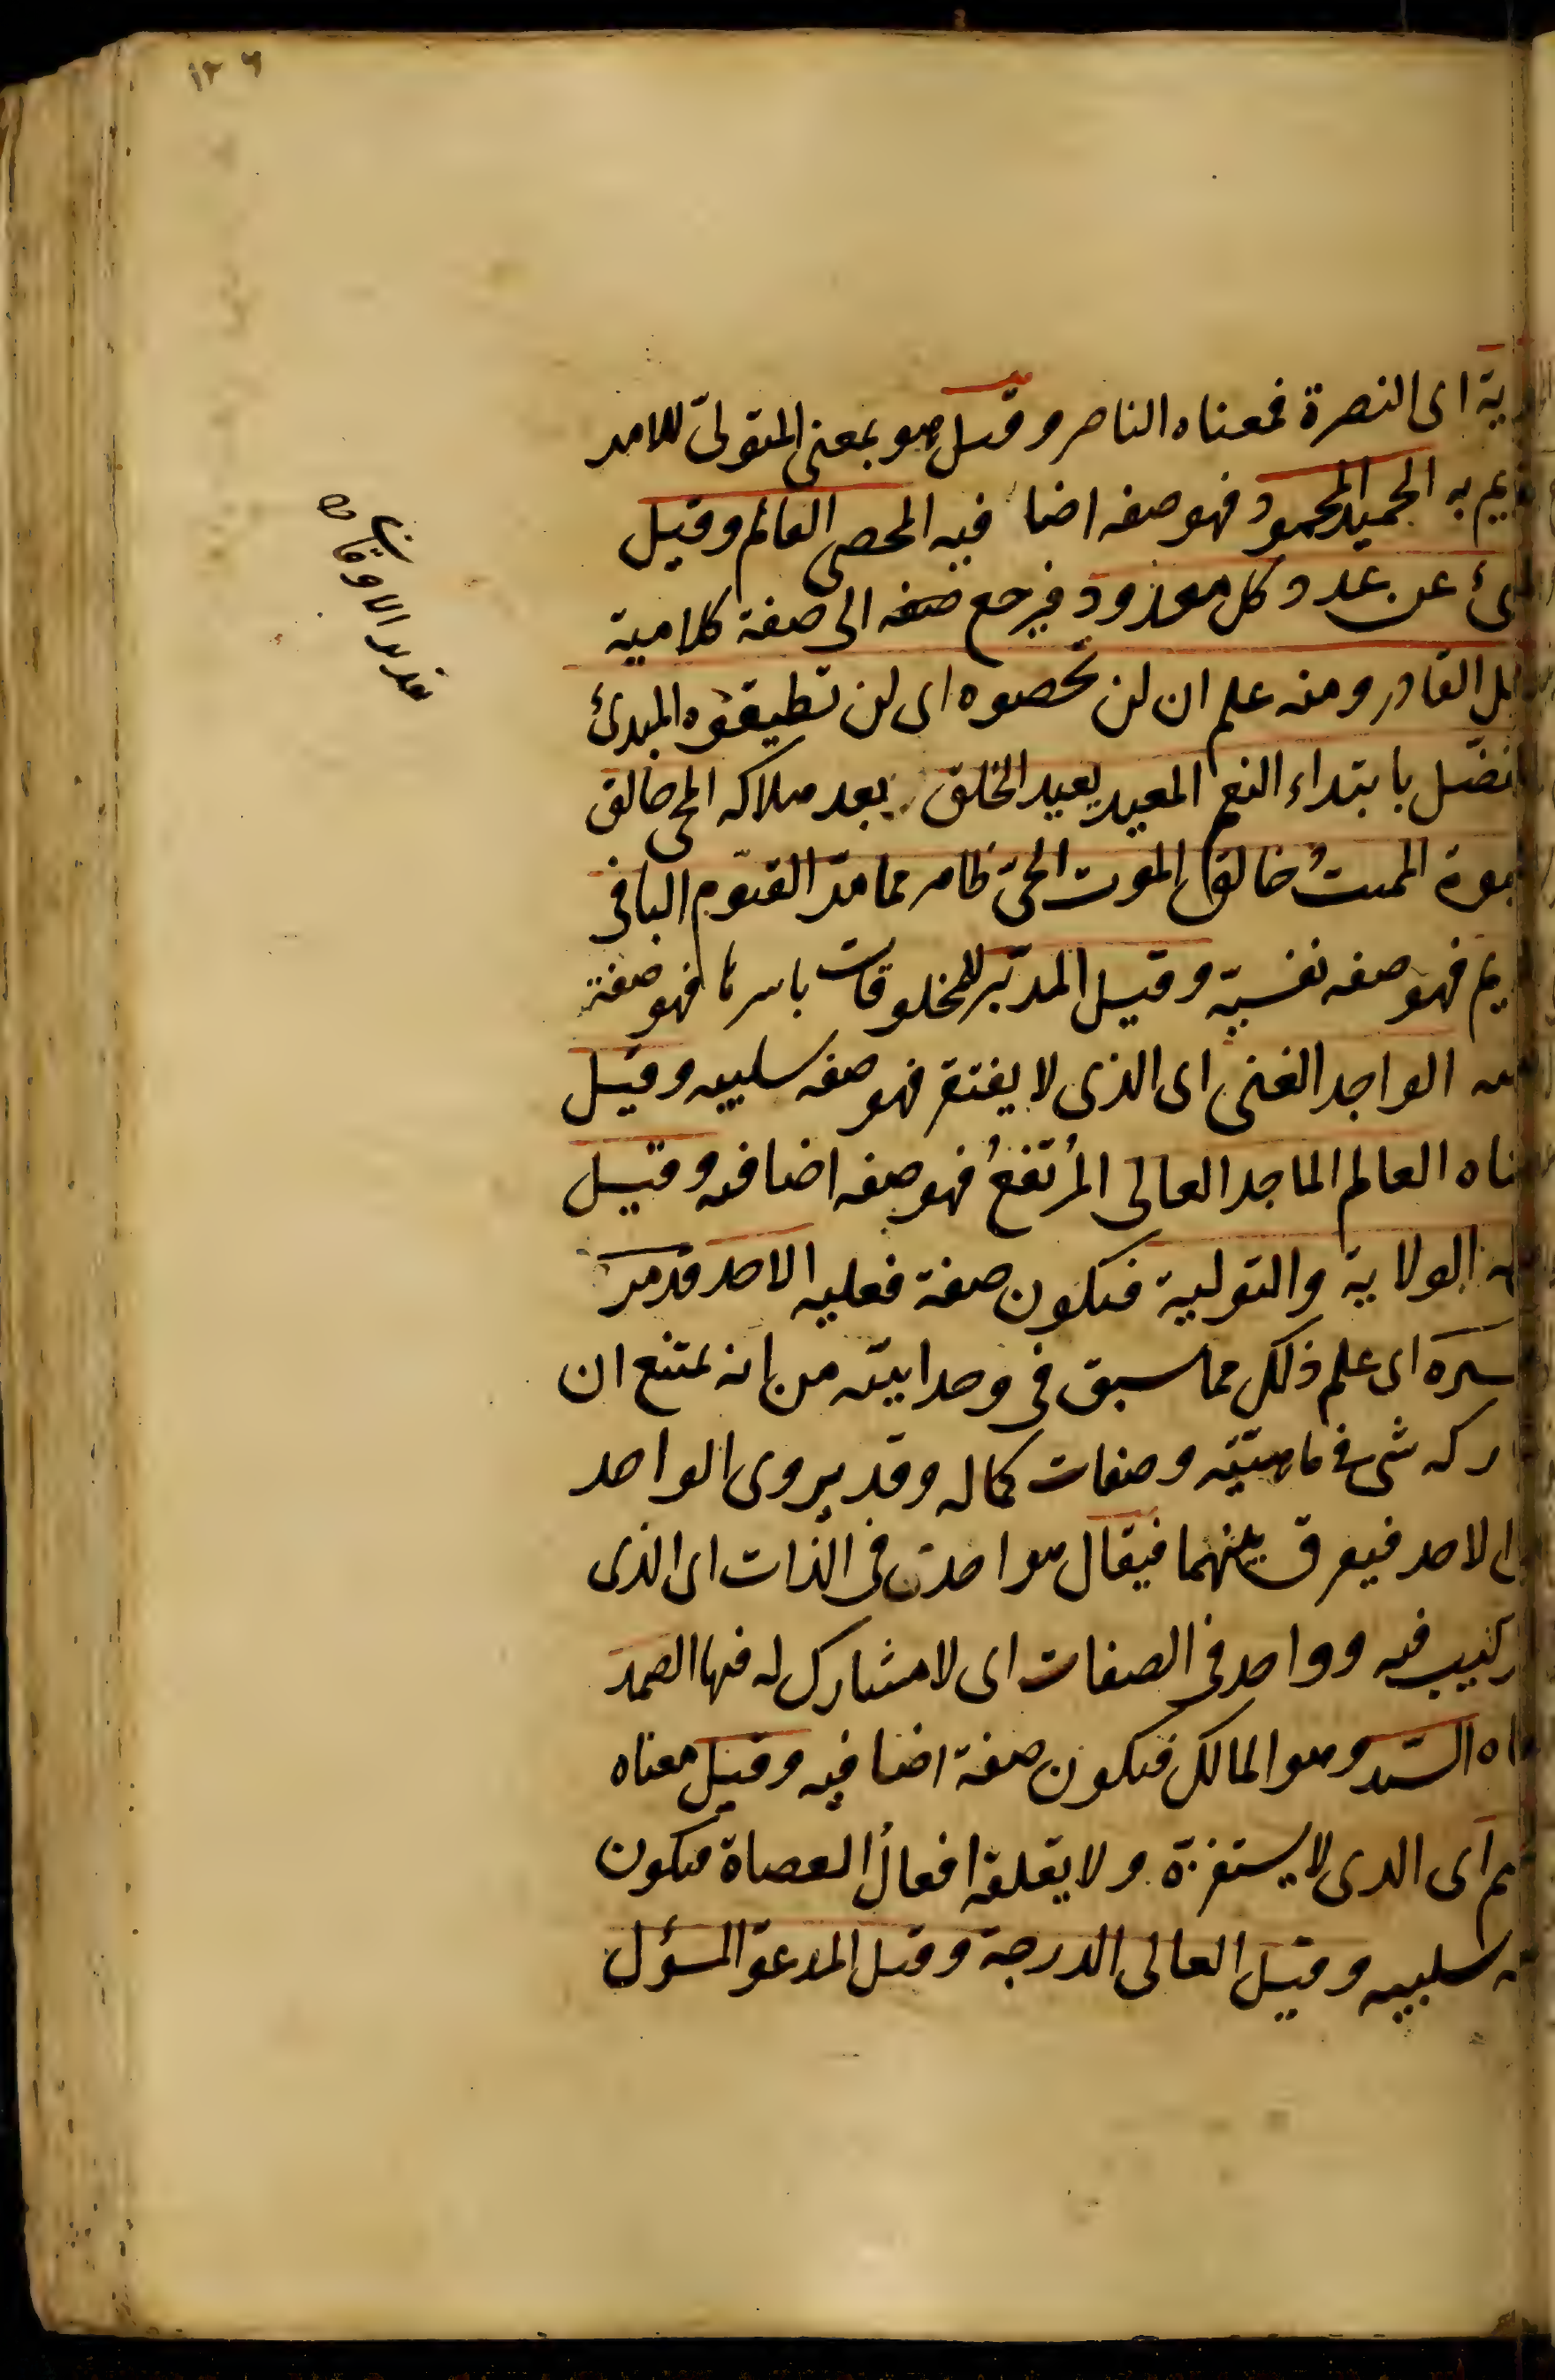 ١٢٦
ية اى النصرة فمعناه الناصر وقيل هو بمعنى المتولىّ للامر
به الحميد المحمود فهو صفه اضا فيه المحصى العالم وقيل
عن عدد كل معدود فيرجع صفه الى صفة كلامية
القادر ومنه علم ان لن تحصوه اى لن تطيقوه المبدئ
بابتداء النعم المعيد يعيد الخلق بعد هلاكه المحى خالق
المميتُ خالق الموت الحىّ ظاهر مما مرّ القيّوم الباقى
يم فهو صفه نفسيّة وقيل المدبّر للمخلوقات باسرها فهو صفة
الواجد الغنى اى الذى لا يفتقر فهو صفه سلبيه وقيل
ناه العالم الماجد العالى المُرتفعُ فهو صفه اضافيه وقيل
الولاية والتولية فيكون صفة فعليه الاحد قد مرّ
اى علم ذلك مما سبق فى وحدانيته من انه يمتنع ان
ركه شى فى ماهيّته وصفات كماله وقد يروى الواحد
الاحد فيفرق بينهما فيقال هو احدىّ فى الذات اى الذى
ركيب فيه وواحد فى الصفات اى لا مشارك له فيها الصمد
اه السّيد وهو المالك فيكون صفة اضافيه وقيل معناه
اى الذى لا يستفزّه ولا يقلقه افعالُ العصاة فيكون
سلبيه وقيل العالى الدرجة وقيل المدعوّ المسؤل